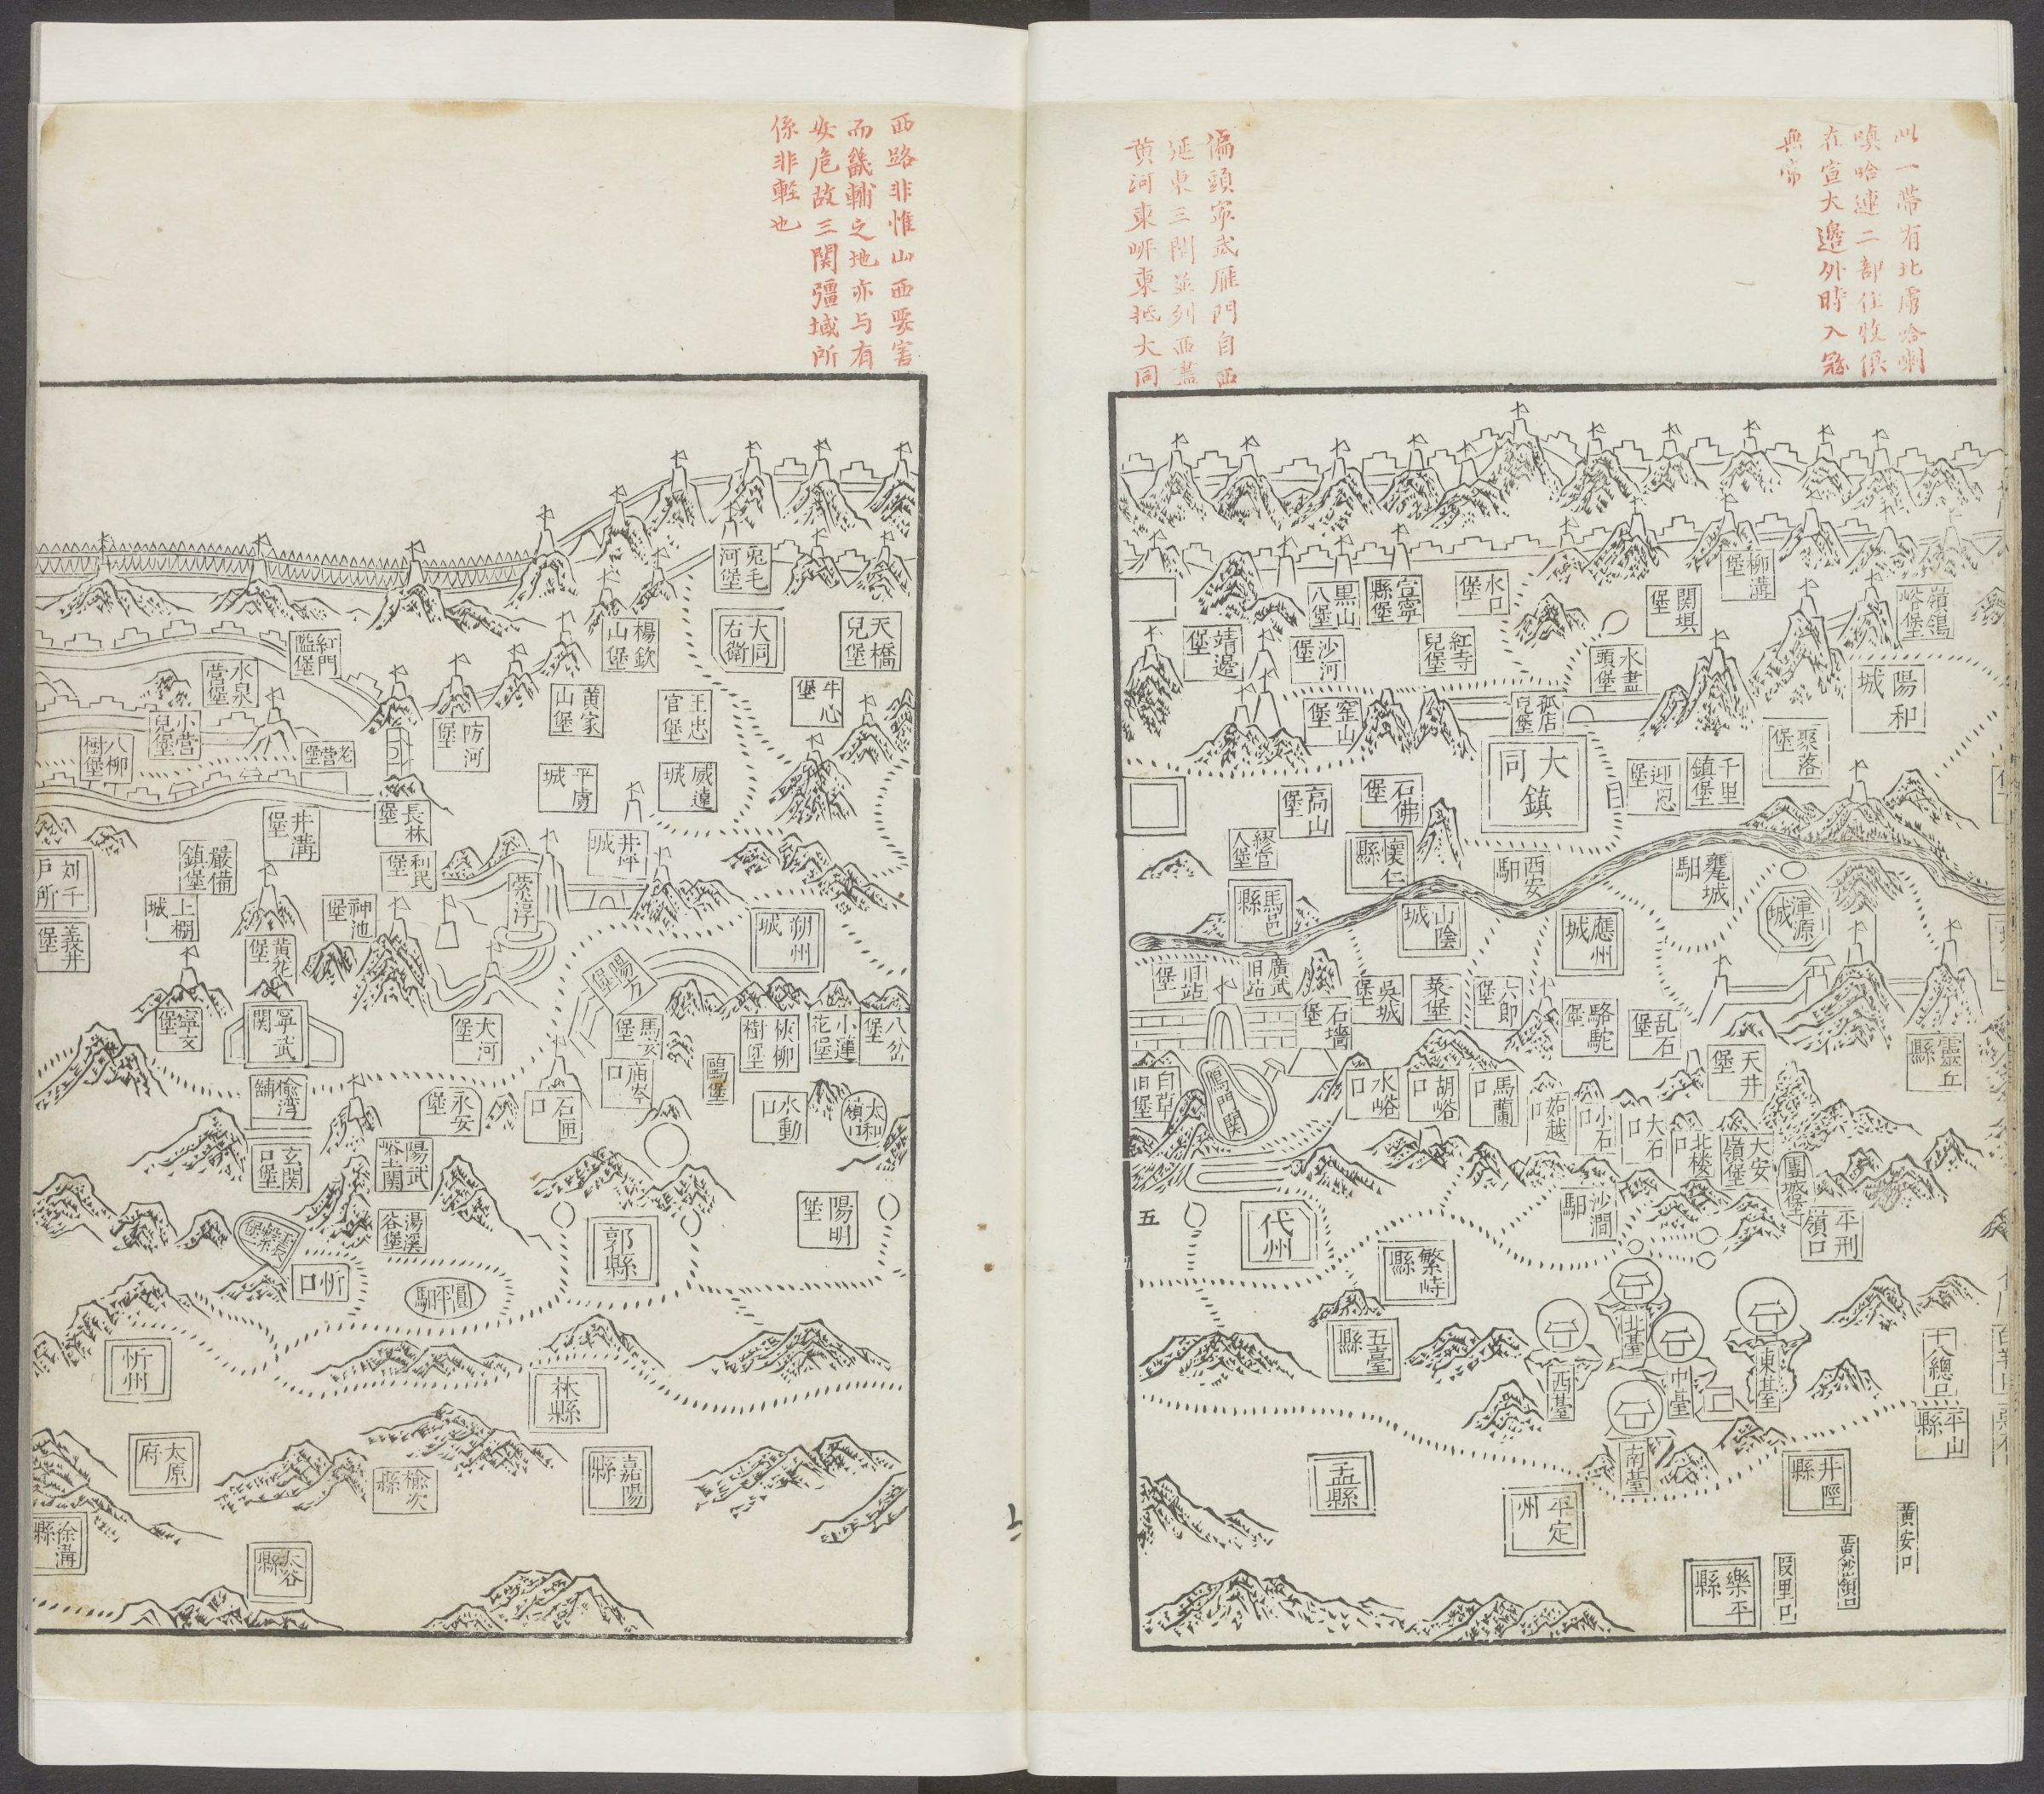 以一帶有北虜哈喇
嗔哈連二部住牧俱
在宣大邊外時入寇
無常
偏頭寧武雁門自西
延東三關並列西盡
黃河東岸東抵大同
西路非惟山西要害
而畿輔之地亦与有
安危故三関彊域所
係非輕也
柳溝堡
関垻堡
水口堡
宣寧縣堡
黒山八堡
靖邊堡
沙河堡
紅寺兒堡
水盡頭堡
陽和城
孤店兒堡
窑山堡
大同鎮
聚落堡
千里鎮堡
迎恩堡
石佛堡
高山堡
繆官人堡
懷仁縣
西安馹
甕城馹
渾源城
馬邑縣
山陰城
應州城
旧站堡
廣武旧站
石墻堡
吳城堡
菜堡
六郎堡
駱駝堡
乱石堡
天井堡
靈丘縣
白草旧堡
鴈門関
水峪口
胡峪口
馬蘭口
姑越口
小石口
大石口
北楼口
大安嶺堡
團城堡
平刑嶺口
沙澗馹
五
代州
繁峙縣
五臺縣
北臺
西臺
中臺
東臺
南臺
十八總口
平山縣
盂縣
平定州
井陘縣
黄安口
黄沙嶺口
段里口
樂平縣
兎毛河堡
大同右衛
天橋兒堡
楊欽山堡
牛心堡
王忠官堡
黄家山堡
紅門隘堡
水泉營堡
小營兒堡
八柳樹堡
老營堡
防河堡
平虜城
威遠城
長林堡
井溝堡
井坪城
利民堡
嚴備鎮堡
上棚城
神池堡
黄花堡
義井堡
朔州城
陽方堡
寧文堡
寧武関
大河堡
馬家堡
庙岺口
狄柳樹堡
小蓮花堡
八岔堡
鵰堡
水動口
太和嶺口
石匣口
永安堡
陽武峪
玄関口堡
湯溪谷堡
陽明堡
郭縣
忻口
圓平馹
忻州
林縣
太原府
榆次縣
嘉陽縣
徐溝縣
太谷縣